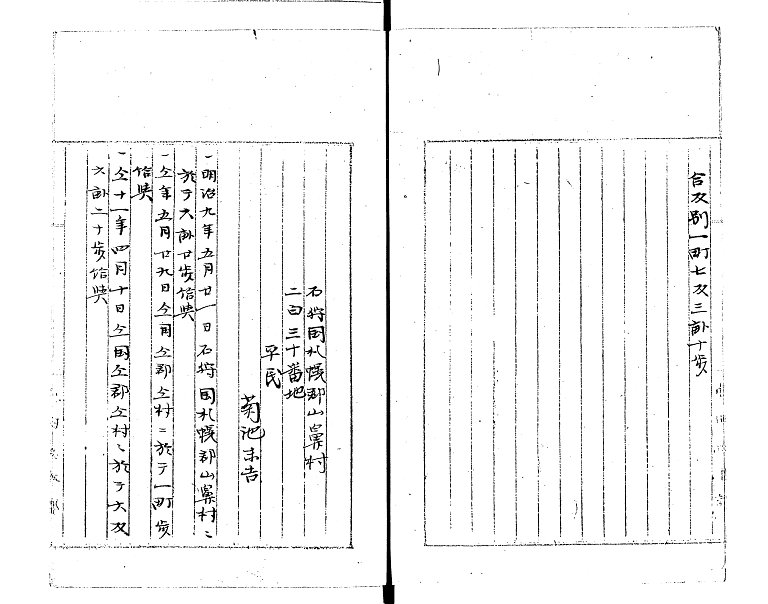 合反別一町七反三畝十歩
石狩国札幌郡山鼻村
二百三十番地
平民
菊池末吉
一明治九年五月廿一日石狩国札幌郡山鼻村ニ
於テ六畝廿歩給与
一仝年五月廿九日仝国仝郡仝村ニ於テ一町歩
給与
一仝十一年四月十日仝国仝郡仝村ニ於テ六反
六畝二十歩給与